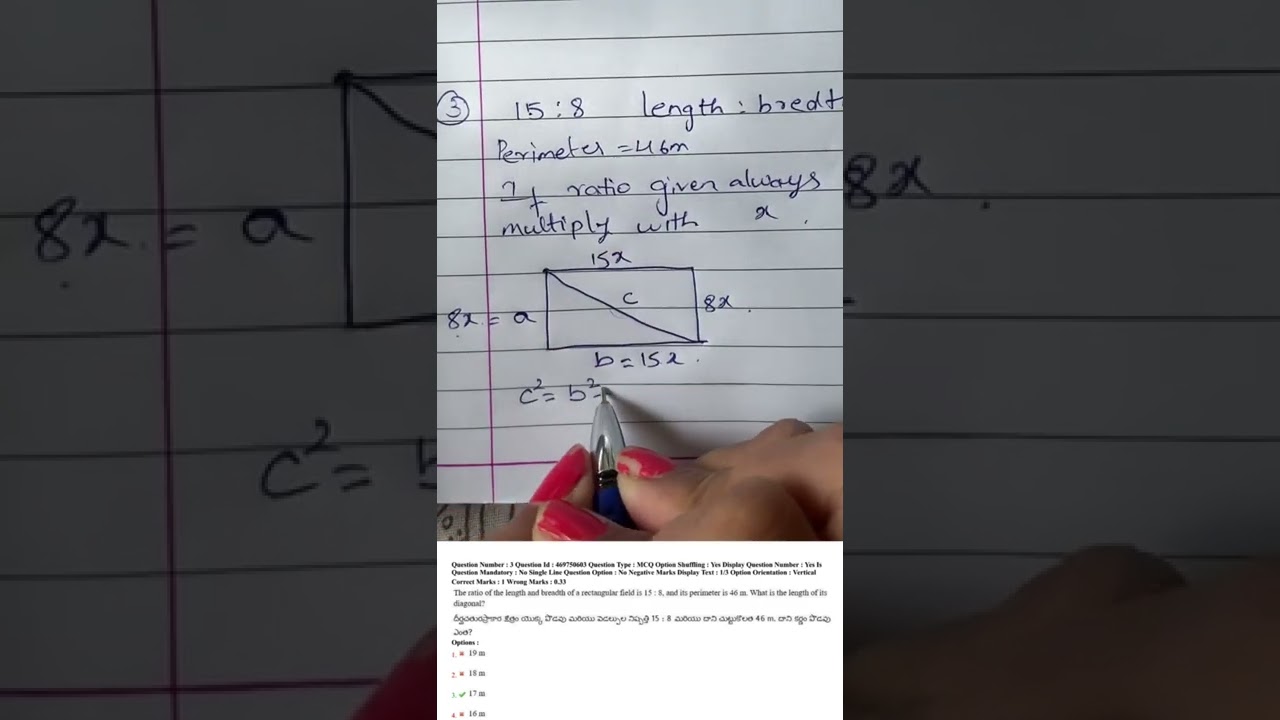 ③ 15:8 length: bredt
Perimeter = 46m
If ratio given always
multiply with x .
15x
c
8x
8x. = a
b = 15x .
c² = b²
8x. = a
8x
c² =
Question Number : 3 Question Id : 469750603 Question Type : MCQ Option Shuffling : Yes Display Question Number : Yes Is
Question Mandatory : No Single Line Question Option : No Negative Marks Display Text : 1/3 Option Orientation : Vertical
Correct Marks : 1 Wrong Marks : 0.33
The ratio of the length and breadth of a rectangular field is 15 : 8, and its perimeter is 46 m. What is the length of its
diagonal?
దీర్ఘచతురస్రాకార క్షేత్రం యొక్క పొడవు మరియు వెడల్పుల నిష్పత్తి 15 : 8 మరియు దాని చుట్టుకొలత 46 m. దాని కర్ణం పొడవు
ఎంత?
Options :
1. ✖ 19 m
2. ✖ 18 m
3. ✔ 17 m
4. ✖ 16 m